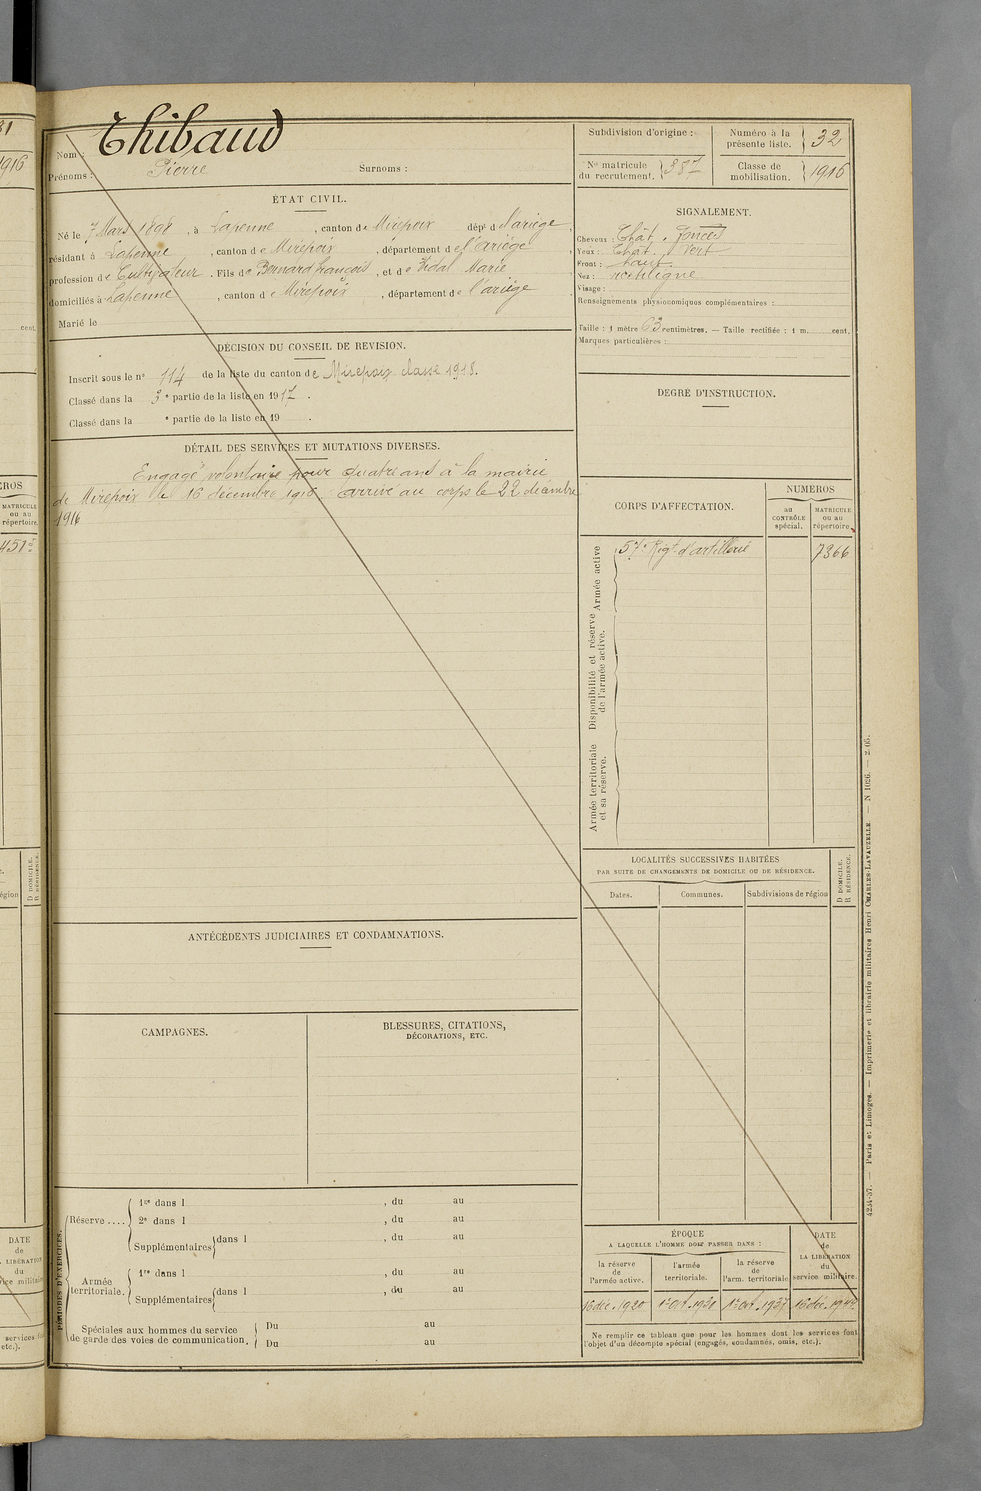 Thibaud
Nom :
Prénoms : Pierre Surnoms :
ÉTAT CIVIL.
Né le 7 Mars 1898, à Lapenne, canton de Mirepoix, dépt d l'ariège,
résidant à Lapenne, canton de Mirepoix, département de l'Ariège,
profession de Cultivateur. Fils de Bernard François, et de Vidal Marie,
domiciliés à Lapenne, canton de Mirepoix, département de l'ariège
Marié le
DÉCISION DU CONSEIL DE REVISION.
Inscrit sous le no 114 de la liste du canton de Mirepoix classe 1918.
Classé dans la 3e partie de la liste en 1917.
Classé dans la e partie de la liste en 19 .
DÉTAIL DES SERVICES ET MUTATIONS DIVERSES.
Engagé volontaire pour quatre ans à la mairie
de Mirepoix le 16 décembre 1916. arrivé au corps le 22 décembre
1916
ANTÉCÉDENTS JUDICIAIRES ET CONDAMNATIONS.
CAMPAGNES.
BLESSURES, CITATIONS,
DÉCORATIONS, ETC.
PÉRIODES D'EXERCICES.
Réserve ....
1re dans l , du au
2e dans l , du au
Supplémentaires dans l , du au
Armée
territoriale.
1re dans l , du au
Supplémentaires dans l , du au
Spéciales aux hommes du service
de garde des voies de communication.
Du au
Du au
Subdivision d'origine :
Numéro à la
présente liste. 32
No matricule
du recrutement. 387
Classe de
mobilisation. 1916
SIGNALEMENT.
Cheveux : Chât. foncés
Yeux : Chât. Vert
Front : haut
Nez : rectiligne
Visage :
Renseignements physionomiques complémentaires :
Taille : 1 mètre 63 centimètres. — Taille rectifiée : 1 m. cent.
Marques particulières :
DEGRÉ D'INSTRUCTION.
CORPS D'AFFECTATION.
NUMÉROS
au
CONTRÔLE
spécial.
MATRICULE
ou au
répertoire.
Armée active
57e Régt d'artillerie 7366
Disponibilité et réserve
de l'armée active.
Armée territoriale
et sa réserve.
LOCALITÉS SUCCESSIVES HABITÉES
PAR SUITE DE CHANGEMENTS DE DOMICILE OU DE RÉSIDENCE.
Dates. Communes. Subdivisions de région
D DOMICILE.
R RÉSIDENCE.
ÉPOQUE
A LAQUELLE L'HOMME DOIT PASSER DANS :
la réserve
de
l'armée active.
l'armée
territoriale.
la réserve
de
l'arm. territoriale
DATE
de
LA LIBÉRATION
du
service militaire.
16 déc. 1920 1er oct. 1931 1er oct. 1937
Ne remplir ce tableau que pour les hommes dont les services font
l'objet d'un décompte spécial (engagés, condamnés, omis, etc.).
4234-37. — Paris et Limoges. — Imprimerie et librairie militaires Henri CHARLES-LAVAUZELLE — N 1026. — 2-05.
31
1916
cent.
ÉROS
MATRICULE
ou au
répertoire.
région
D DOMICILE.
R RÉSIDENCE.
DATE
de
LA LIBÉRATION
du
vice militaire
services font
etc.).